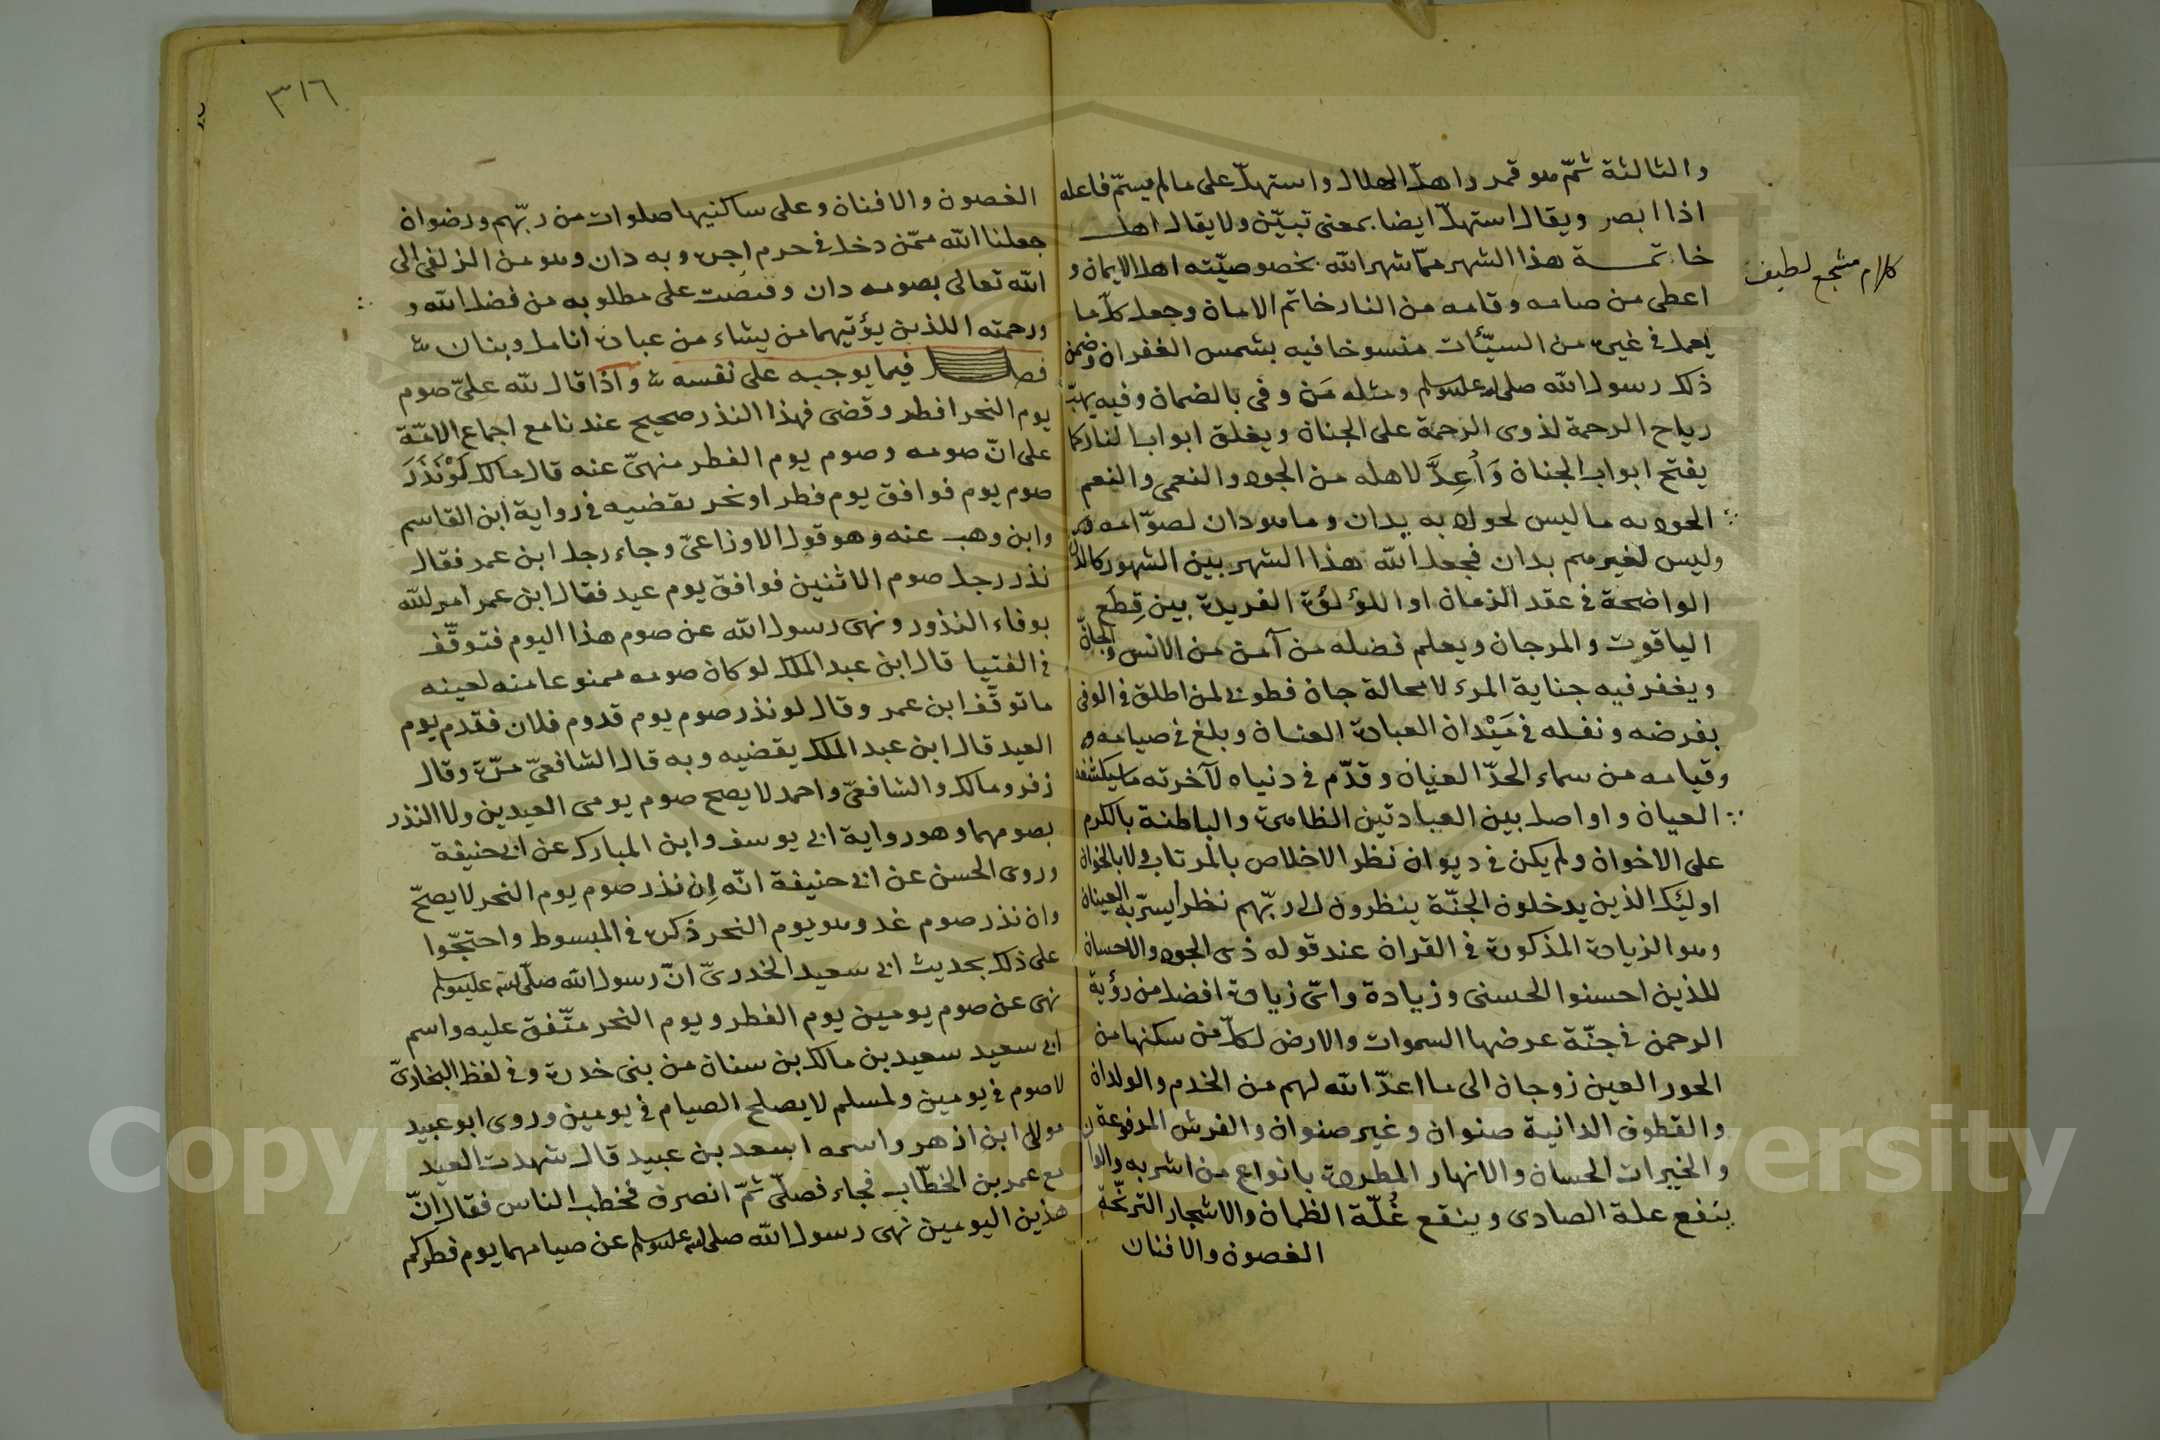 والثالثة ثمّ هو قمر واهلّ الهلال واستهلّ على مالم يسمّ فاعله
اذا ابصر ويقال استهلّ ايضا بمعنى تبيّن ولا يقال اهل
خاتمة هذا الشهر ممّا شهر الله بخصوصيّته اهل الايمان و
كلام مسجع لطيف
اعطى من صامه وقامه من النار خاتم الامان وجعل كلّ ما
يعمل في غيره من السيّئات منسوخا فيه بشمس الغفران وضمن
ذلك رسول الله صلى الله عليه وسلم ومثله مَن وفى بالضمان وفيه يهبّ
رياح الرحمة لذوى الزحمة على الجنان ويغلق ابواب النار كما
يفتح ابواب الجنان وَاُعِدَّ لاهله من الجود والنعمى والنعم
الجود به ما ليس لحول به يدان وما هو دان لصوّامه و
وليس لغيرهم بدان فجعل الله هذا الشهر بين الشهور كالدان
الواضحة في عقد الزمان او اللؤلؤة الفريدة بين قِطَع
الياقوت والمرجان ويعلم فضله من آمن من الانس والجانّ
ويغفر فيه جناية المرء لا محالة جان فطوبى لمن اطلق في الونى
بفرضه ونفله في مَيْدان العبادة العنان وبلغ في صيامه و
وقيامه من سماء الحدّ العنان وقدّم في دنياه لآخرته ما سيكشفه
العيان واواصل بين العبادتين الظاهرة والباطنة بالكرم
على الاخوان ولم يكن في ديوان نظر الاخلاص بالمرتاب ولا بالخوان
اوليك الذين يدخلون الجنّة ينظرون الى ربّهم نظرا يسرّ به العينان
وهو الزيادة المذكورة في القران عند قوله ذى الجود والاحسان
للذين احسنوا الحسنى وزيادة واىّ زيادة افضل من رؤية
الرحمن في جنّة عرضها السموات والارض لكلّ من سكنها من
الحور العين زوجان الى ما اعدّ الله لهم من الخدم والولدان
والقطوف الدانية صنوان وغير صنوان والفرش المرفوعة
والخيرات الحسان والانهار المطردة بانواع من اشربه والوان
ينفع علة الصادى وينقع غُلّة الظمان والاشجار الترنّحة
الغصون والافنان
٣١٦
الغصون والافنان وعلى ساكنيها صلوات من ربّهم ورضوان
جعلنا الله ممّن دخل في حرم اجره وبه دان وهو من الزلفى الى
الله تعالى بصومه دان وقبضت على مطلوبه من فضل الله و
ورحمته اللذين يؤتيهما من يشاء من عباده انامل وبنان
فصل فيما يوجبه على نفسه واذا قال لله علىّ صوم
يوم النحر افطر وقضى فهذا النذر صحيح عندنا مع اجماع الامّة
على انّ صومه وصوم يوم الفطر منهىّ عنه قال مالك لَوْ نَذَرَ
صوم يوم فوافق يوم فطر او نحر يقضيه في رواية ابن القاسم
وابن وهب عنه وهو قول الاوزاعىّ وجاء رجل ابن عمر فقال
نذر رجل صوم الاثنين فوافق يوم عيد فقال ابن عمر امر الله
بوفاء النذور ونهى رسول الله عن صوم هذا اليوم فتوقّف
في الفتيا قال ابن عبد الملك لو كان صومه ممنوعا منه لعينه
ما توقّف ابن عمر وقال لو نذر صوم يوم قدوم فلان فقدم يوم
العيد قال ابن عبد الملك يقضيه وبه قال الشافعىّ مرّة وقال
زفر ومالك والشافعىّ واحمد لا يصح صوم يومى العيدين ولا النذر
بصومهما وهو رواية ابى يوسف وابن المبارك عن ابى حنيفة
وروى الحسن عن ابى حنيفة انّه اِن نذر صوم يوم النحر لا يصحّ
وان نذر صوم غد وهو يوم النحر ذكره في المبسوط واحتجّوا
على ذلك بحديث ابى سعيد الخدرىّ انّ رسول الله صلّى الله عليه وسلم
نهى عن صوم يومين يوم الفطر ويوم النحر متّفق عليه واسم
ابى سعيد سعيد بن مالك بن سنان من بنى خدرة وفي لفظ البخارىّ
لا صوم في يومين ولمسلم لا يصلح الصيام في يومين وروى ابو عبيد
مولى ابن ازهر واسمه اسعد بن عبيد قال شهدت العيد
مع عمر بن الخطّاب فجاء فصلّى ثمّ انصرف فخطب الناس فقال انّ
هذين اليومين نهى رسول الله صلى الله عليه وسلم عن صيامهما يوم فطركم
Copyright © King Saud University